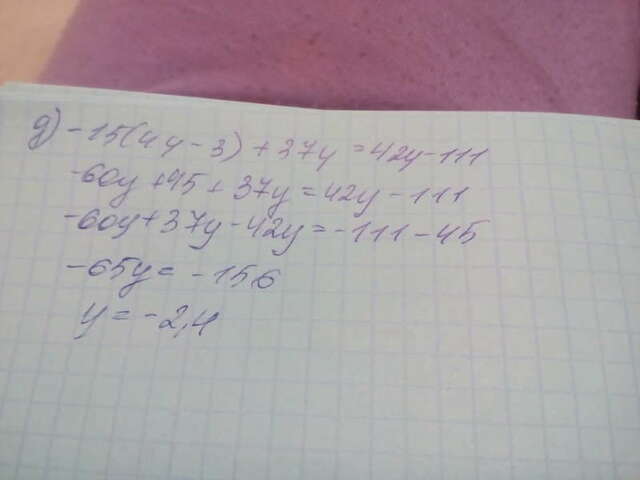 д) -15(4y-3)+37y=42y-111
-60y+45+37y=42y-111
-60y+37y-42y=-111-45
-65y=-156
y=-2,4